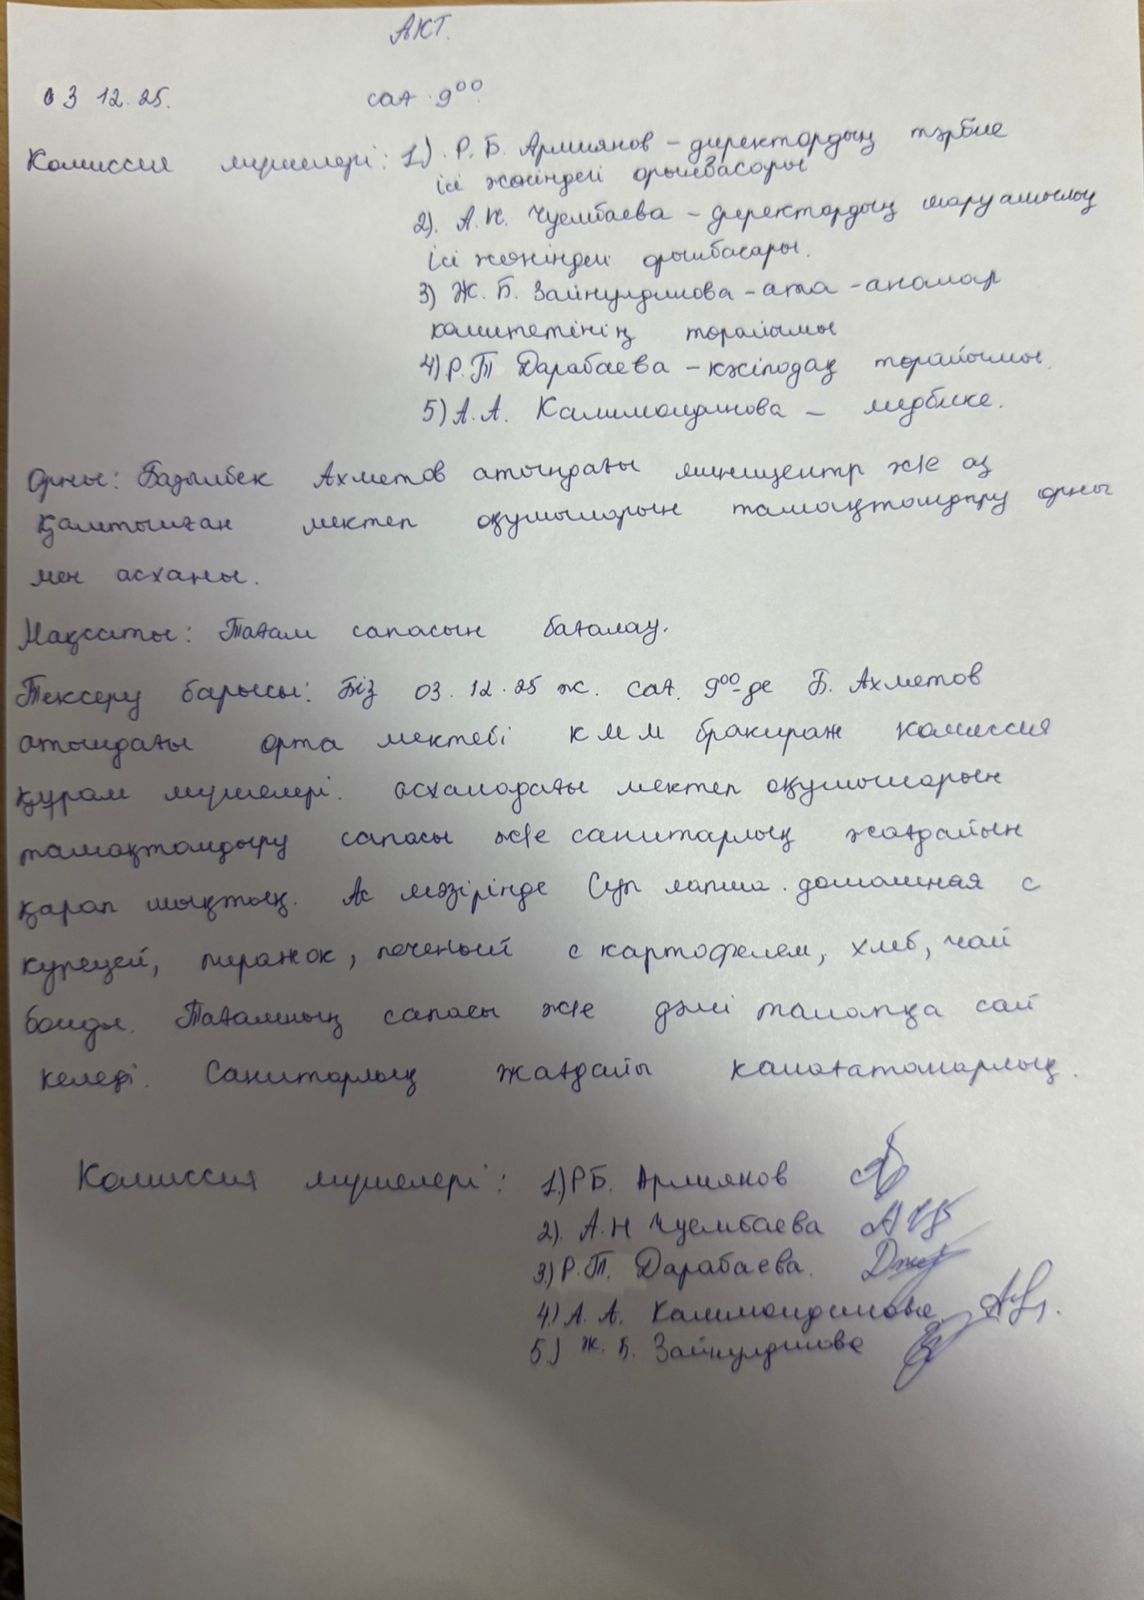 АКТ.
03 12.25. сағ. 9⁰⁰.
Комиссия мүшелері: 1.) Р.Б. Армиянов – директордың тәрбие
ісі жөніндегі орынбасары
2). А.Н. Чуембаева – директордың шаруашылық
ісі жөніндегі орынбасары.
3) Ж.Б. Зайнулдинова – ата-аналар
комитетінің төрайымы
4) Р.Т Дарабаева – кәсіподақ төрайымы.
5) А.А. Калимолдинова – медбике.
Орны: Базылбек Ахметов атындағы миницентр ж/е аз
қамтылған мектеп оқушыларын тамақтандыру орны
мен асханы.
Мақсаты: Тағам сапасын бағалау.
Тексеру барысы: Біз 03.12.25 ж. сағ. 9⁰⁰-де Б. Ахметов
атындағы орта мектебі КММ бракираж комиссия
құрам мүшелері. асханадағы мектеп оқушыларын
тамақтандыру сапасы ж/е санитарлық жағдайын
қарап шықтық. Ас мәзірінде Суп лапша домашняя с
курецей, пиражок, печеный с картофелем, хлеб, чай
болды. Тағамның сапасы ж/е дәмі талапқа сай
келеді. Санитарлық жағдайы канағатанарлық.
Комиссия мүшелері: 1.) РБ. Армиянов
2). А.Н Чуембаева
3) Р.Т. Дарабаева.
4.) А.А. Калимолдинова
5.) Ж.Б. Зайнулдинова